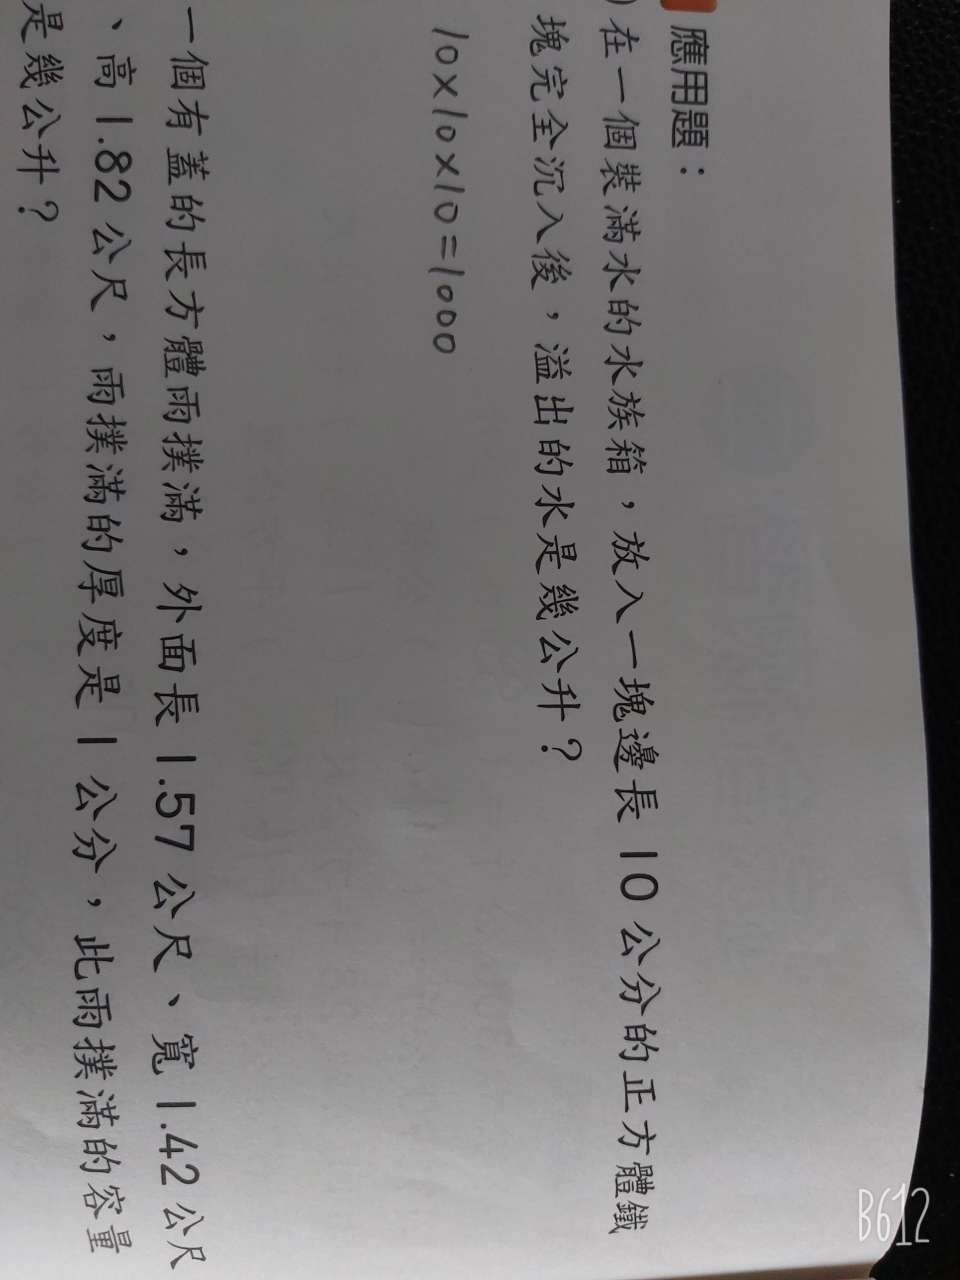 應用題：
在一個裝滿水的水族箱，放入一塊邊長 10 公分的正方體鐵
塊完全沉入後，溢出的水是幾公升？
10×10×10=1000
一個有蓋的長方體雨撲滿，外面長 1.57 公尺、寬 1.42 公尺
、高 1.82 公尺，雨撲滿的厚度是 1 公分，此雨撲滿的容量
是幾公升？
B612